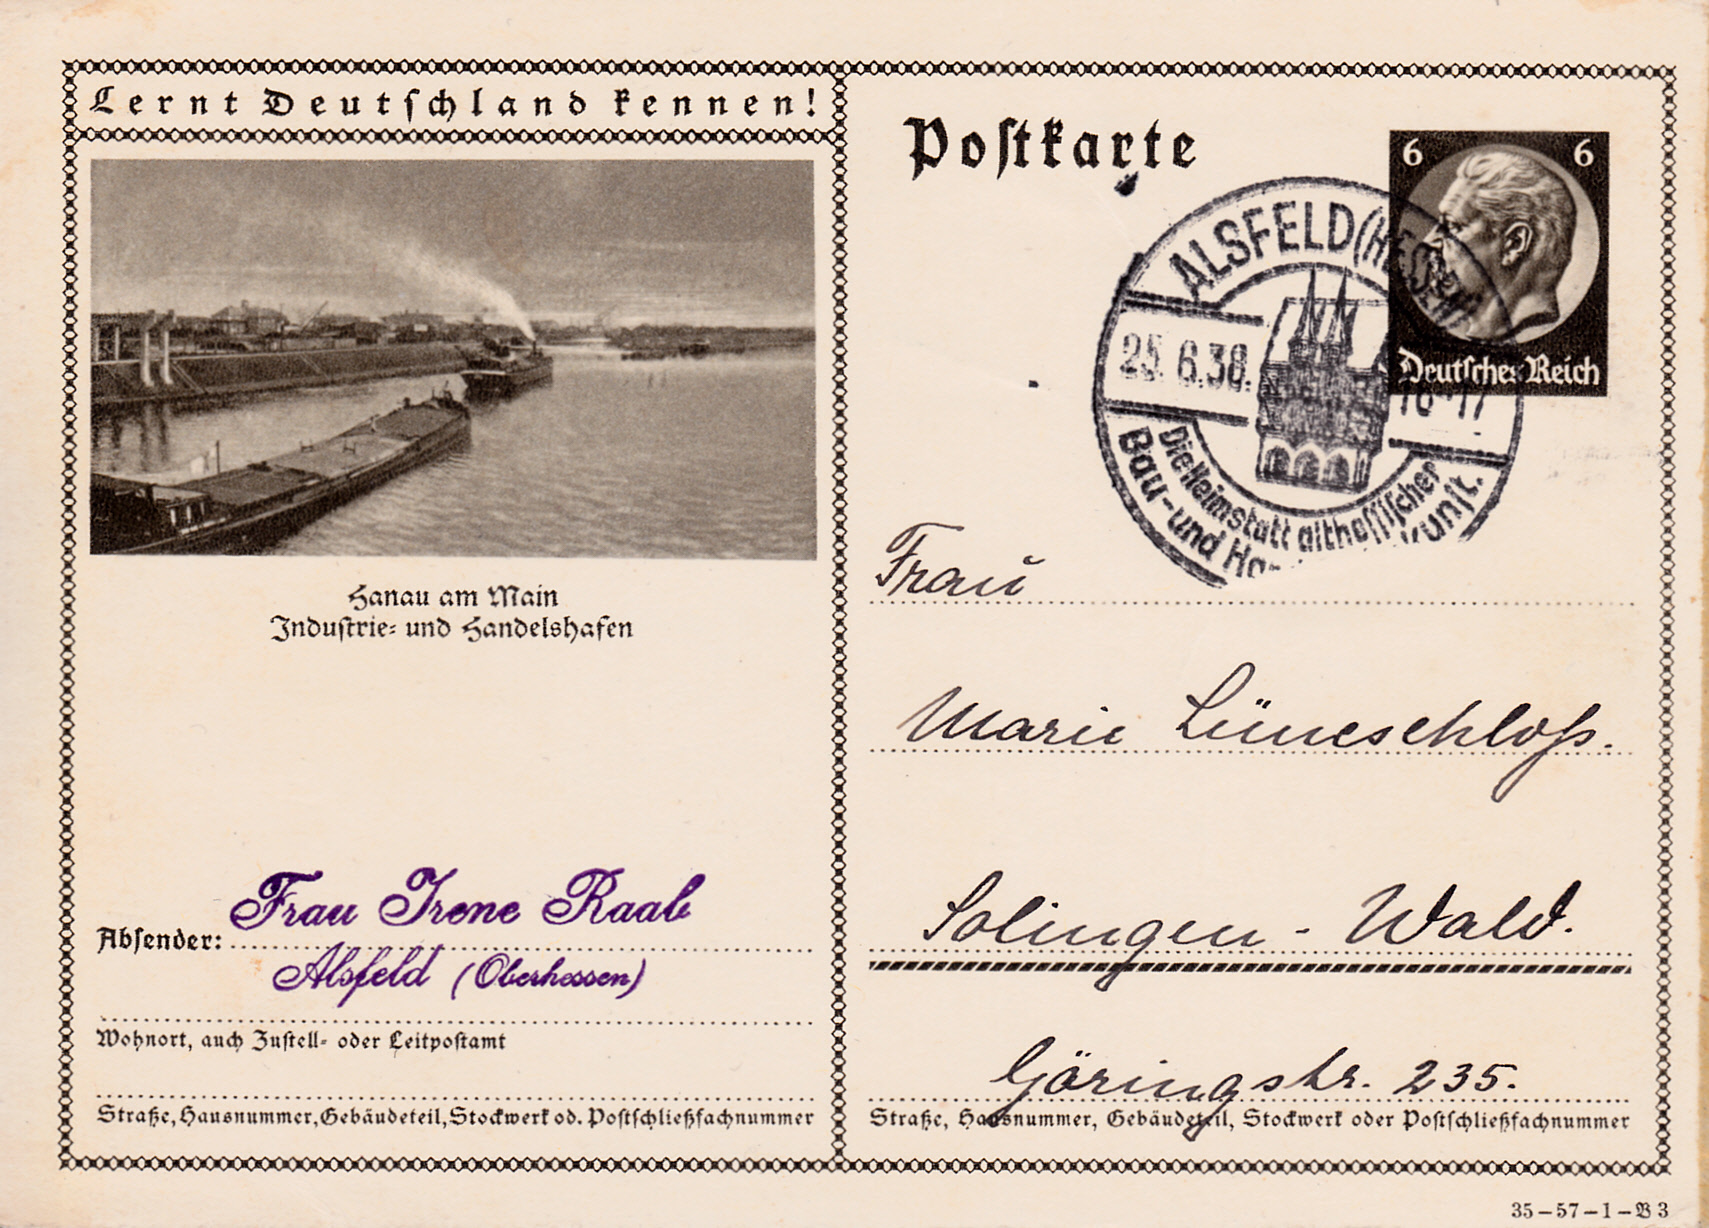 Lernt Deutschland kennen!
Hanau am Main
Industrie- und Handelshafen
Frau Irene Raab
Absender:
Alsfeld (Oberhessen)
Wohnort, auch Zustell- oder Leitpostamt
Straße, Hausnummer, Gebäudeteil, Stockwerk od. Postschließfachnummer
Postkarte
6 6
Deutsches Reich
ALSFELD (HESSEN)
25.6.36. 16-17
Die Heimstatt althessischer
Bau- und Kunst.
Frau
Marie Lüneschloß.
Solingen - Wald.
Göringstr. 235.
Straße, Hausnummer, Gebäudeteil, Stockwerk oder Postschließfachnummer
35-57-1-B3